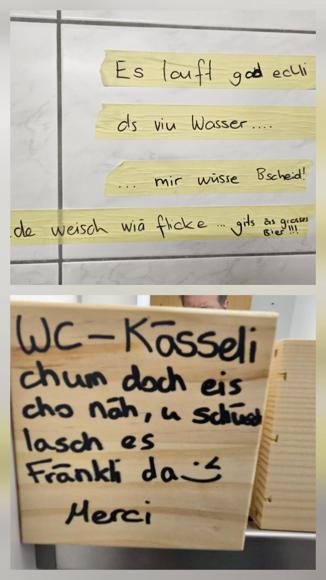 Es lauft grad echli
ds viu Wasser....
... mir wüsse Bscheid!
.de weisch wiä flicke ... gits äs grosses
Bier!!!
WC-Kässeli
chum doch eis
cho näh, u schüsch
lasch es
Fränkli da
Merci